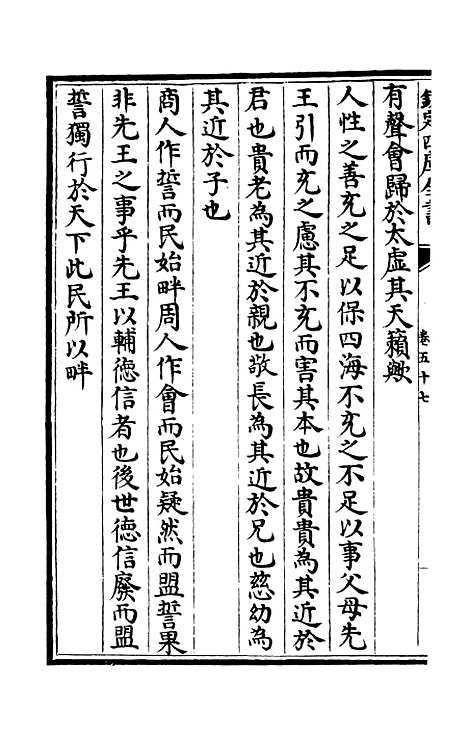 欽定四庫全書
卷五十七
有聲會歸於太虛其天籟歟
人性之善充之足以保四海不充之不足以事父母先
王引而充之慮其不充而害其本也故貴貴為其近於
君也貴老為其近於親也敬長為其近於兄也慈幼為
其近於子也
商人作誓而民始畔周人作會而民始疑然而盟誓果
非先王之事乎先王以輔徳信者也後世徳信廢而盟
誓獨行於天下此民所以畔